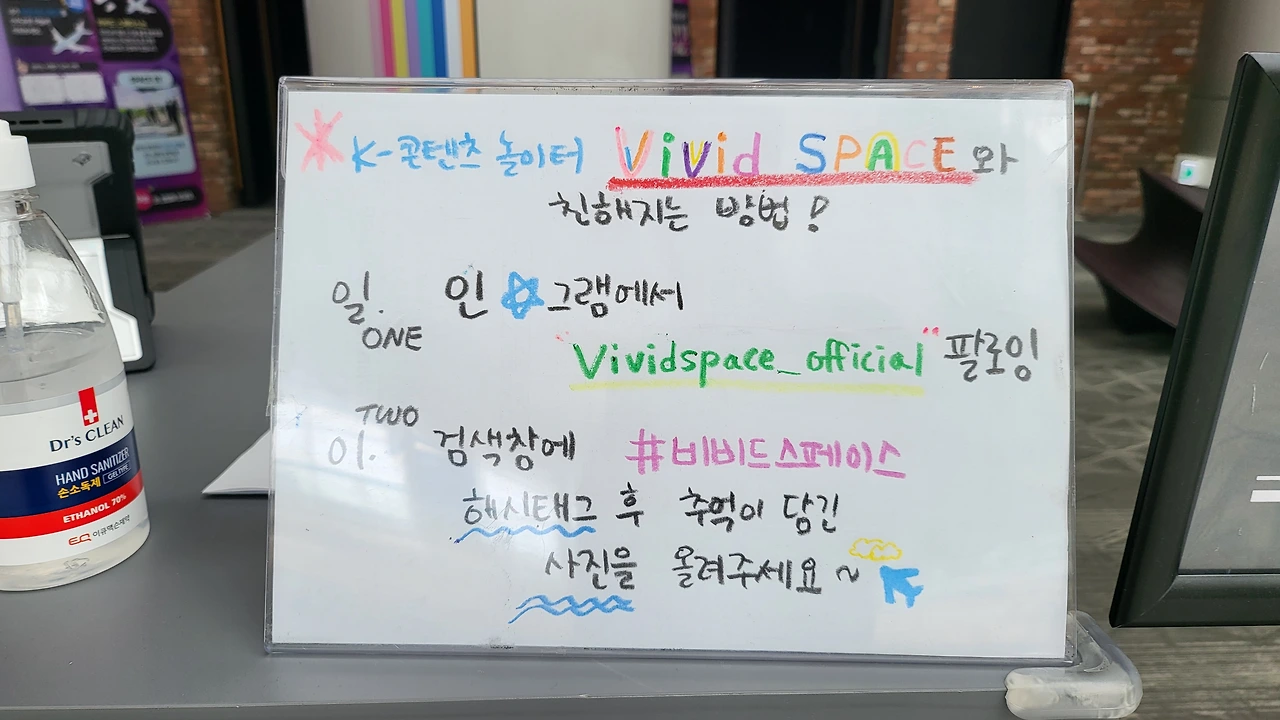 K-콘텐츠 놀이터 Vivid SPACE와
친해지는 방법!
일. ONE 인☆그램에서
"Vividspace_official" 팔로잉
이. TWO 검색창에 #비비드스페이스
해시태그 후 추억이 담긴
사진을 올려주세요~
Dr's CLEAN
HAND SANITIZER
손소독제 GEL TYPE
ETHANOL 70%
EQ 이큐맥스제약